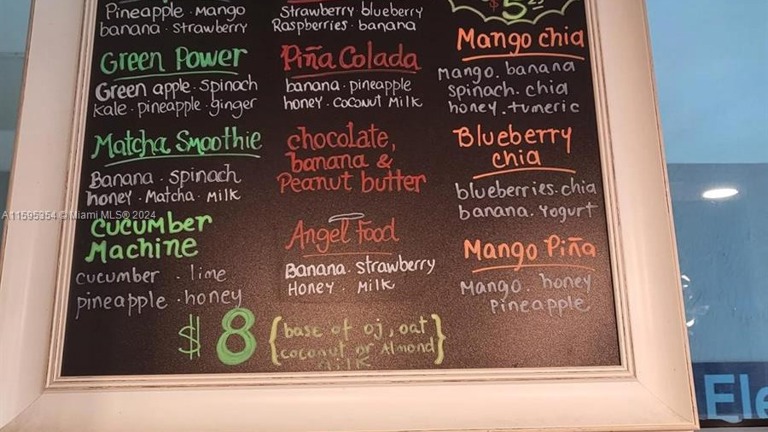 Pineapple · Mango
banana · strawberry
Green Power
Green apple · spinach
kale · pineapple · ginger
Matcha Smoothie
Banana · spinach
honey · Matcha · Milk
Cucumber
Machine
cucumber · lime
pineapple · honey
Strawberry blueberry
Raspberries · banana
Piña Colada
banana · pineapple
honey · coconut Milk
chocolate,
banana &
Peanut butter
Angel Food
Banana · strawberry
Honey · Milk
$8 {base of oj, oat
coconut or Almond}
Milk
Mango chia
Mango. banana
spinach. chia
honey. tumeric
Blueberry
chia
blueberries. chia
banana. Yogurt
Mango Piña
Mango. honey
Pineapple
A11595354 © Miami MLS® 2024
Ele